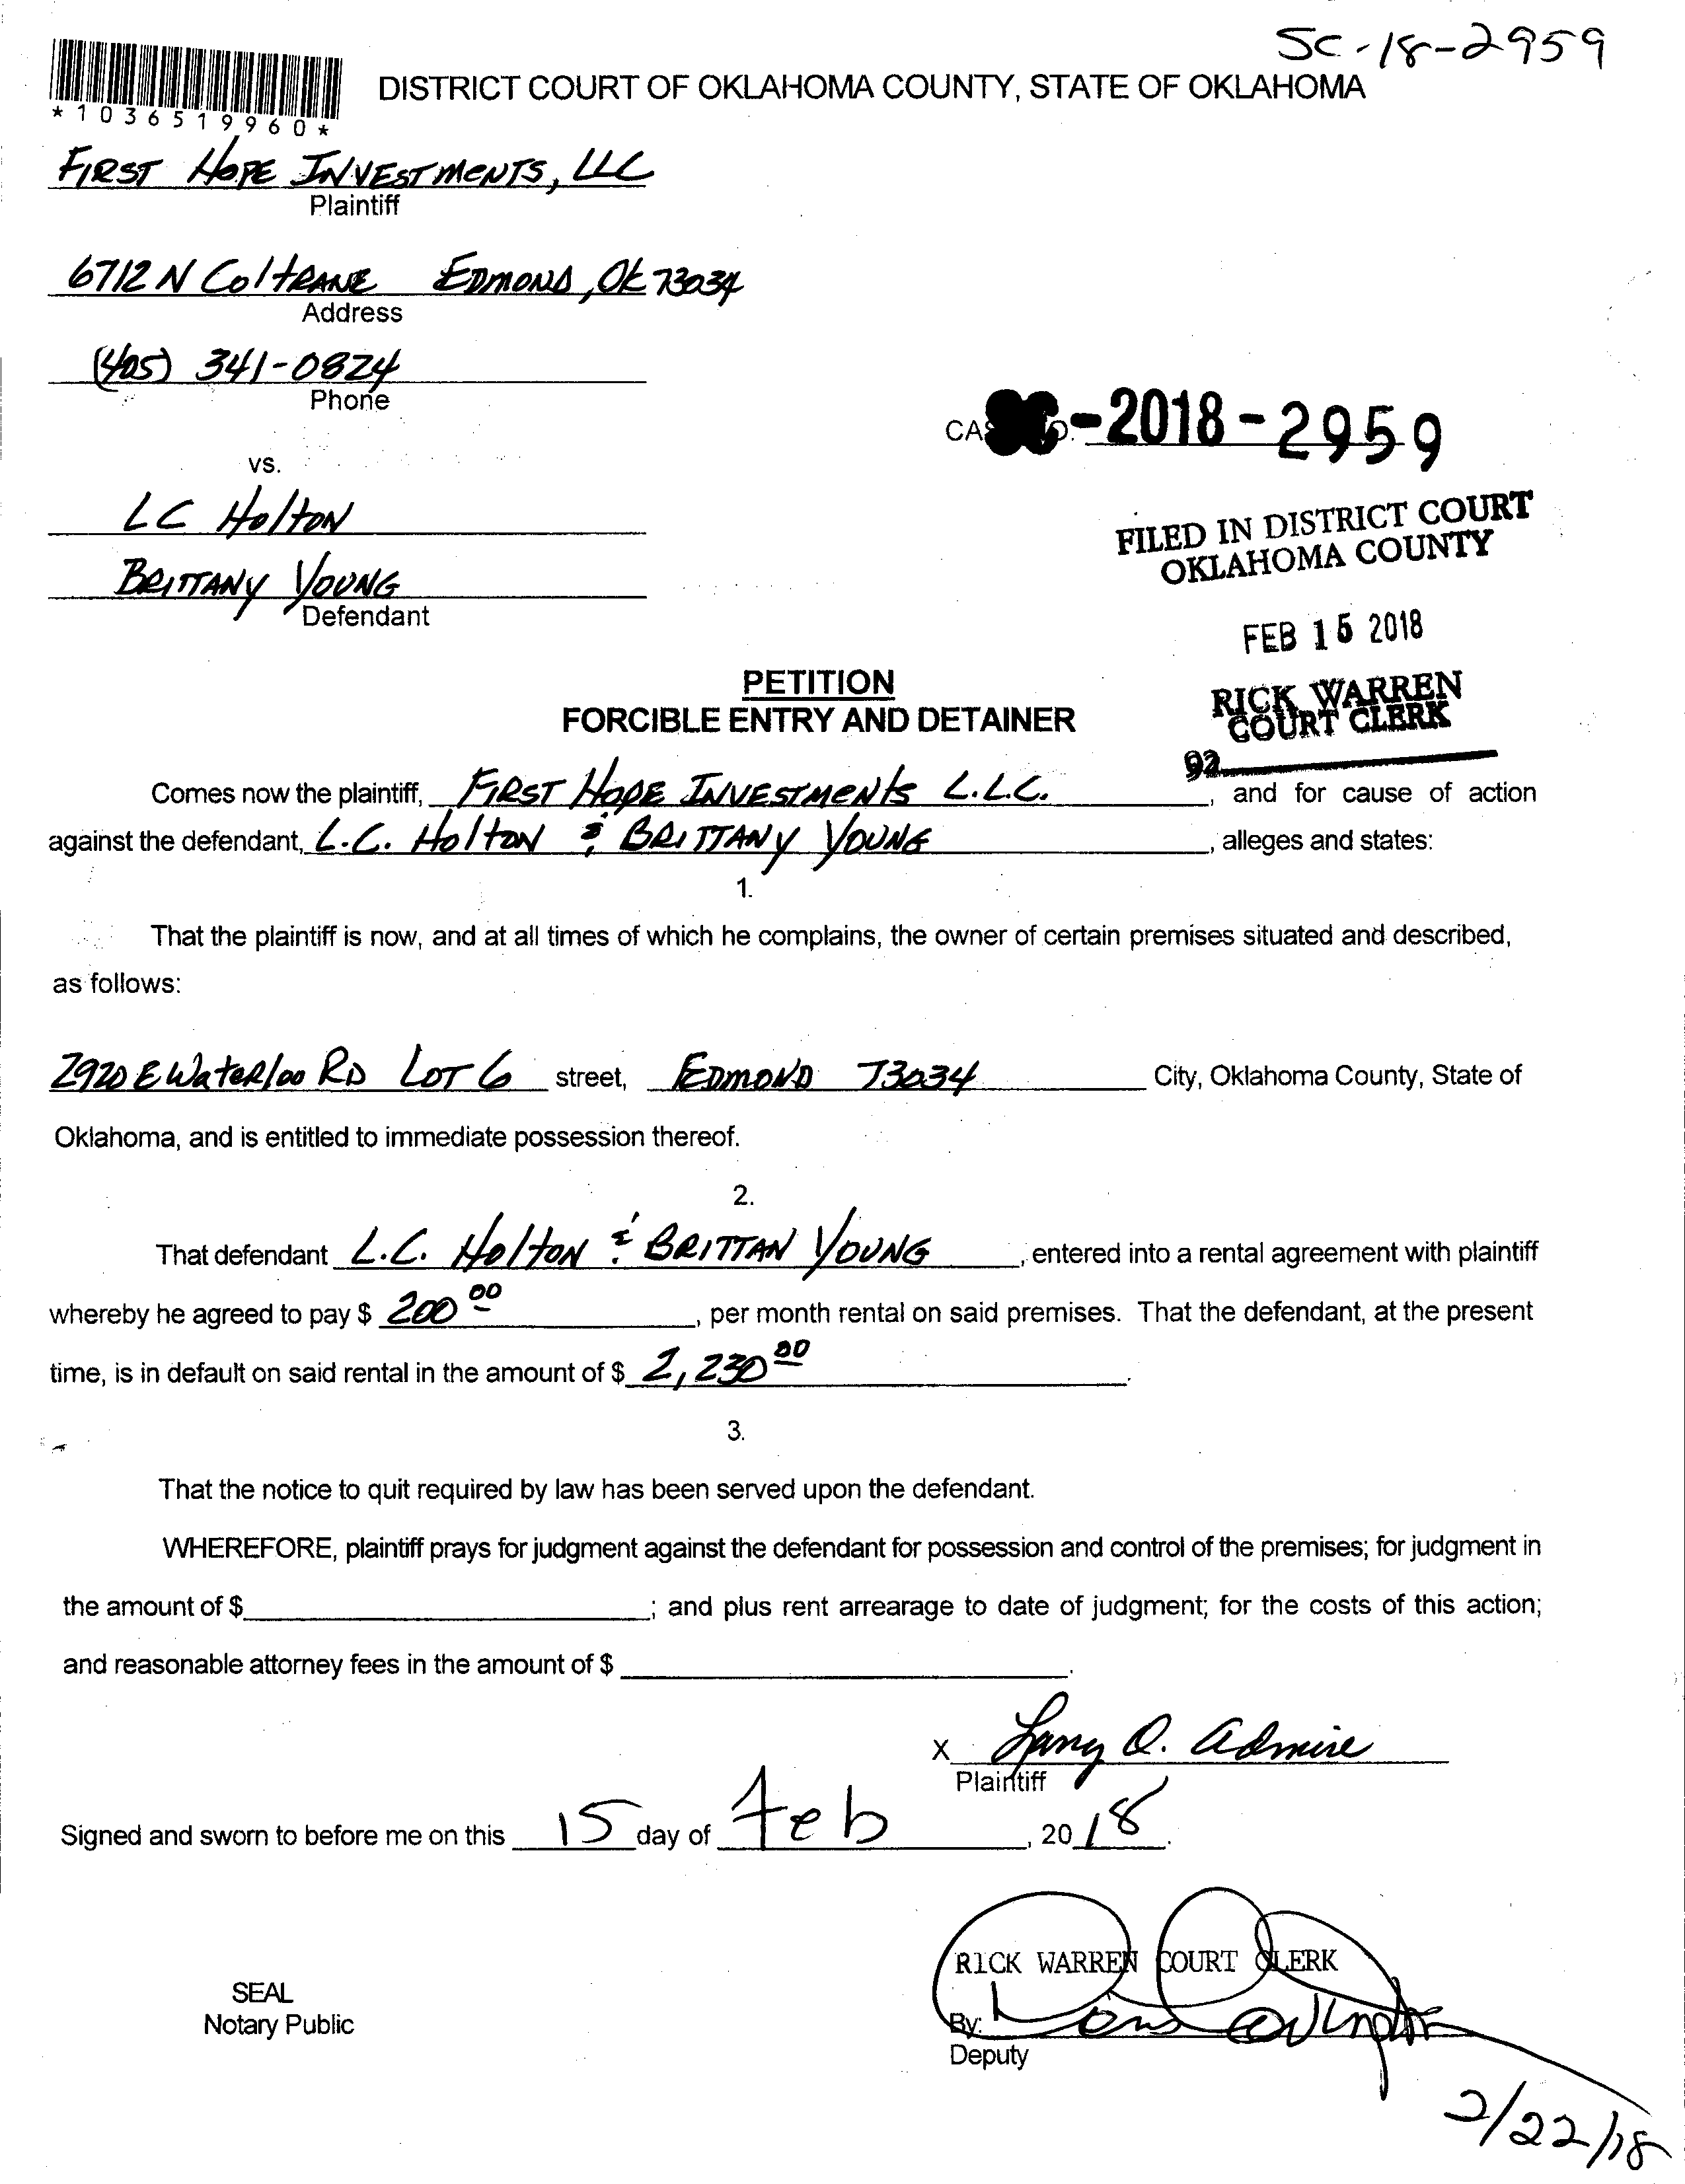 SC-18-2959
DISTRICT COURT OF OKLAHOMA COUNTY, STATE OF OKLAHOMA
*1036519960*
FIRST HOPE INVESTMENTS, LLC
Plaintiff
6712 N COLTRANE EDMOND, OK 73034
Address
(405) 341-0824
Phone
-2018-2959
vs.
LC HOLTON
BRITTANY YOUNG
Defendant
FILED IN DISTRICT COURT
OKLAHOMA COUNTY
FEB 15 2018
RICK WARREN
COURT CLERK
92
PETITION
FORCIBLE ENTRY AND DETAINER
Comes now the plaintiff, FIRST HOPE INVESTMENTS L.L.C., and for cause of action
against the defendant, L.C. HOLTON & BRITTANY YOUNG, alleges and states:
1.
That the plaintiff is now, and at all times of which he complains, the owner of certain premises situated and described,
as follows:
2920 E WATERLOO RD LOT 6 street, EDMOND 73034 City, Oklahoma County, State of
Oklahoma, and is entitled to immediate possession thereof.
2.
That defendant L.C. HOLTON & BRITTAN YOUNG, entered into a rental agreement with plaintiff
whereby he agreed to pay $ 200 00, per month rental on said premises. That the defendant, at the present
time, is in default on said rental in the amount of $ 2,230 00.
3.
That the notice to quit required by law has been served upon the defendant.
WHEREFORE, plaintiff prays for judgment against the defendant for possession and control of the premises; for judgment in
the amount of $ ; and plus rent arrearage to date of judgment; for the costs of this action;
and reasonable attorney fees in the amount of $ .
X Larry Q. Admire
Plaintiff
Signed and sworn to before me on this 15 day of Feb, 20 18.
RICK WARREN COURT CLERK
SEAL
Notary Public
By:
Deputy
2/22/18